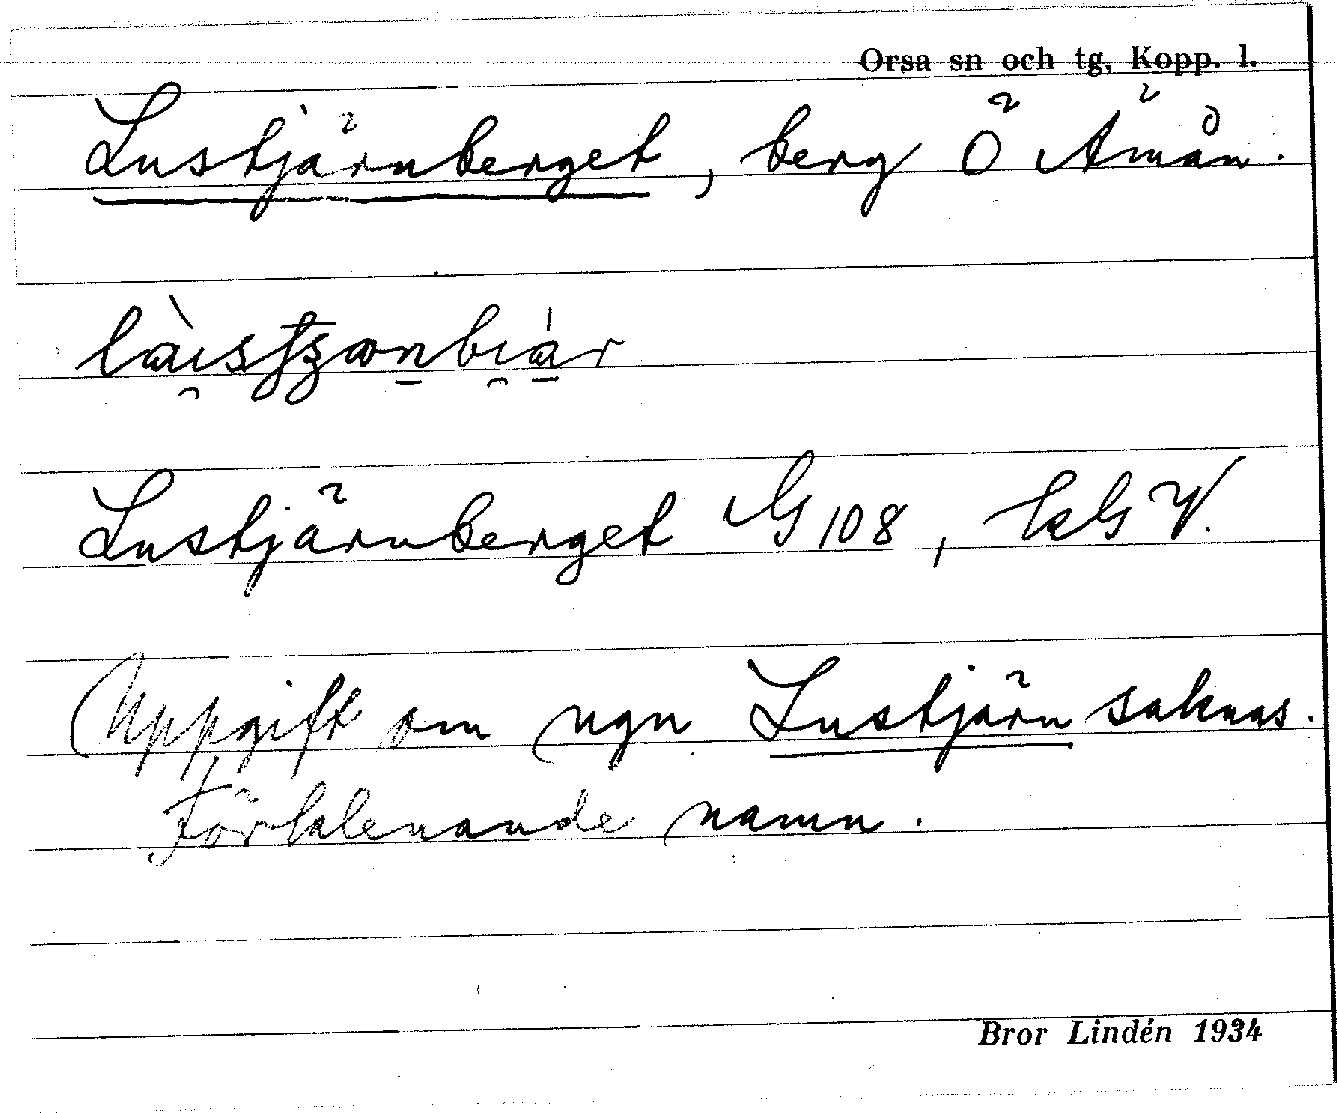 Orsa sn och tg, Kopp. l.
Lustjärnberget, berg Ö Ämån.
Lustjärnberget G 108, kG V.
Uppgift om ngn Lustjärn saknas.
Förklenande namn.
Bror Lindén 1934